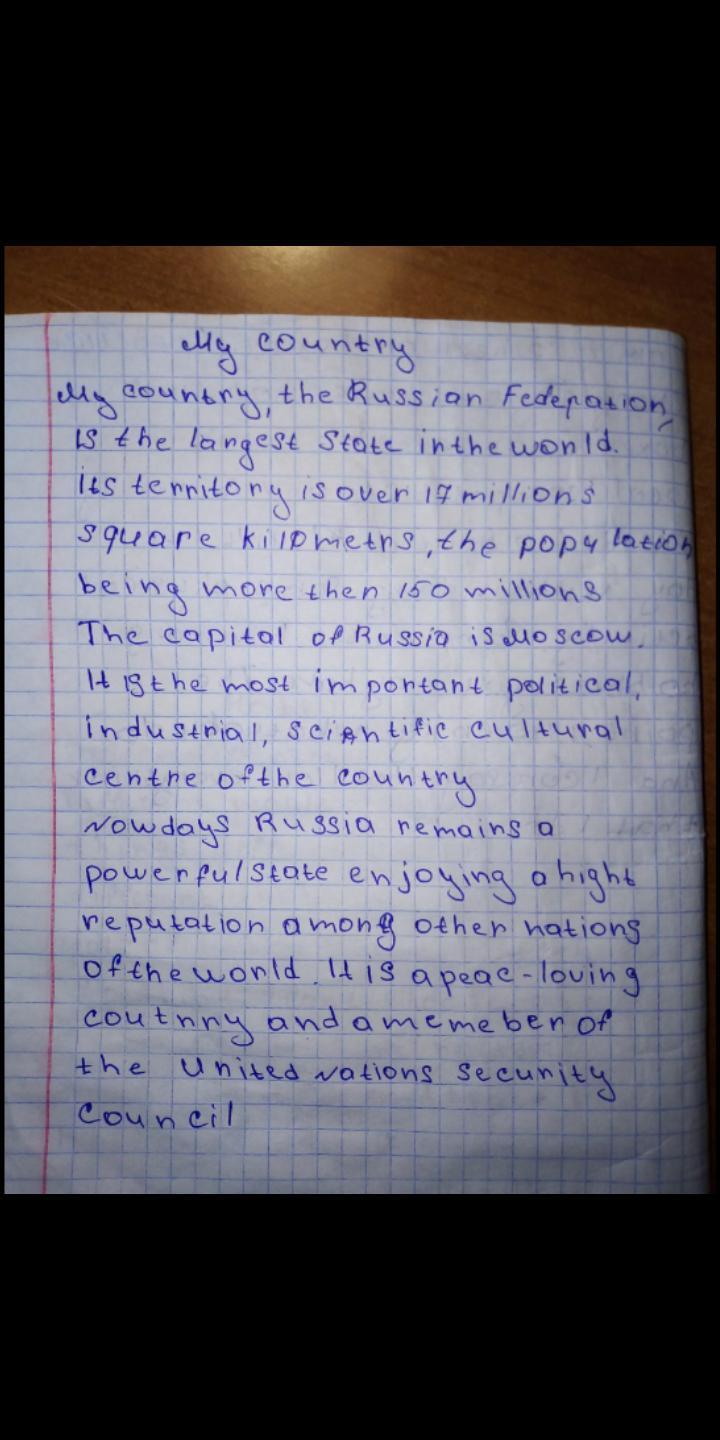 My country
My country, the Russian Federation,
is the largest State in the world.
its territory is over 17 millions
square kilometrs, the population
being more then 150 millions
The capital of Russia is Moscow.
It is the most important political,
industrial, scientific cultural
centre of the country
Nowdays Russia remains a
powerful state enjoying a hight
reputation among other nations
of the world. It is a peac-loving
coutnry and a memeber of
the United Nations security
council